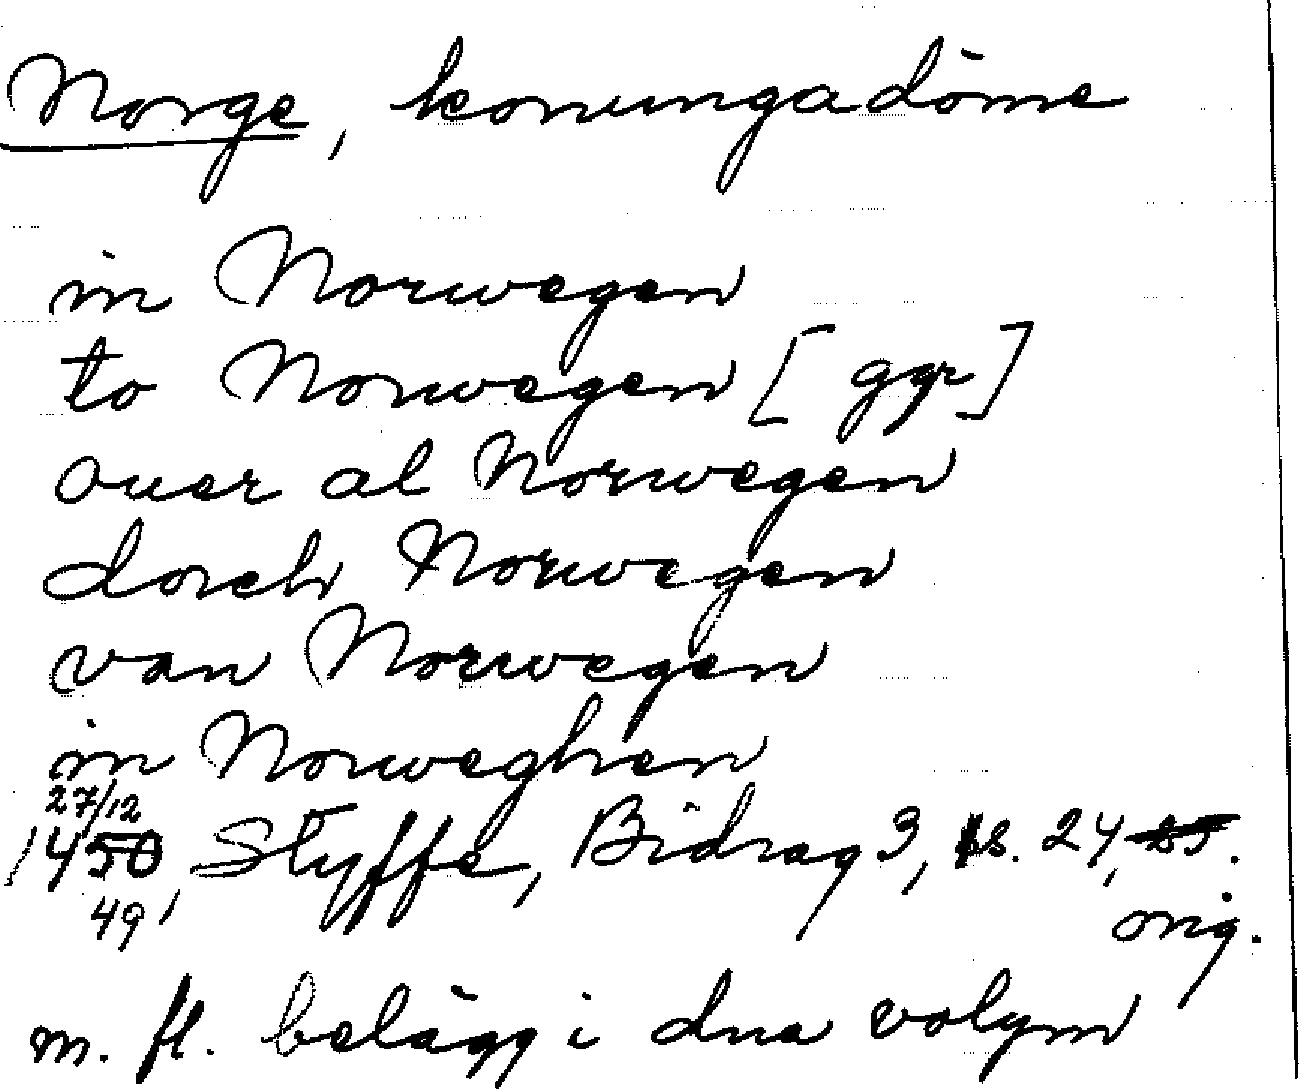 Norge, konungadöme
in Norwegen
to Norwegen [ggr]
ouer al Norwegen
dorch Norwegen
van Norwegen
in Norweghen
27/12
1450, Styffe, Bidrag 3, s. 24, 25.
49,
orig.
m. fl. belägg i dna volym